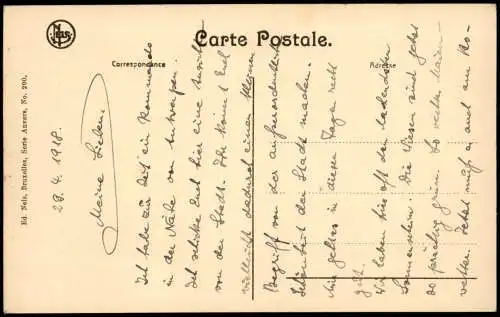 NELS
Carte Postale.
Correspondance
Adresse
Ed. Nels, Bruxelles, Serie Anvers, No. 200.
29. 4. 1918.
Meine Lieben.
Ich habe zur Zeit ein Kommando
in der Nähe von Antwerpen.
Ich schicke Euch hier eine Ansicht
von der Stadt. Ihr könnt Euch
vielleicht dadurch einen kleinen
Begriff von der außerordentlichen
Schönheit der Stadt machen.
Mir geht es in diesen Tagen recht
gut.
Wir haben hier oft den
Sonnenschein. Die Wiesen sind jetzt
so prächtig grün. So
Jetzt mag er auch am